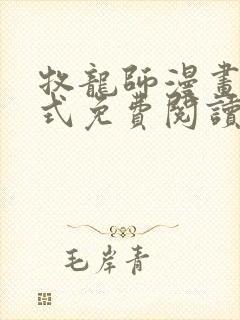 牧龍師漫畫
式免費閱讀
毛岸青